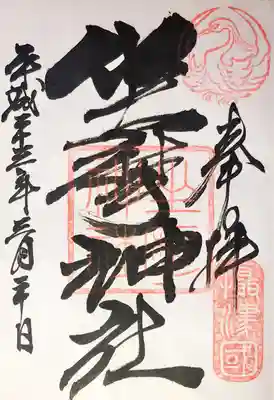 奉拝
摂津國
坐摩神社
平成二十三年三月二十日